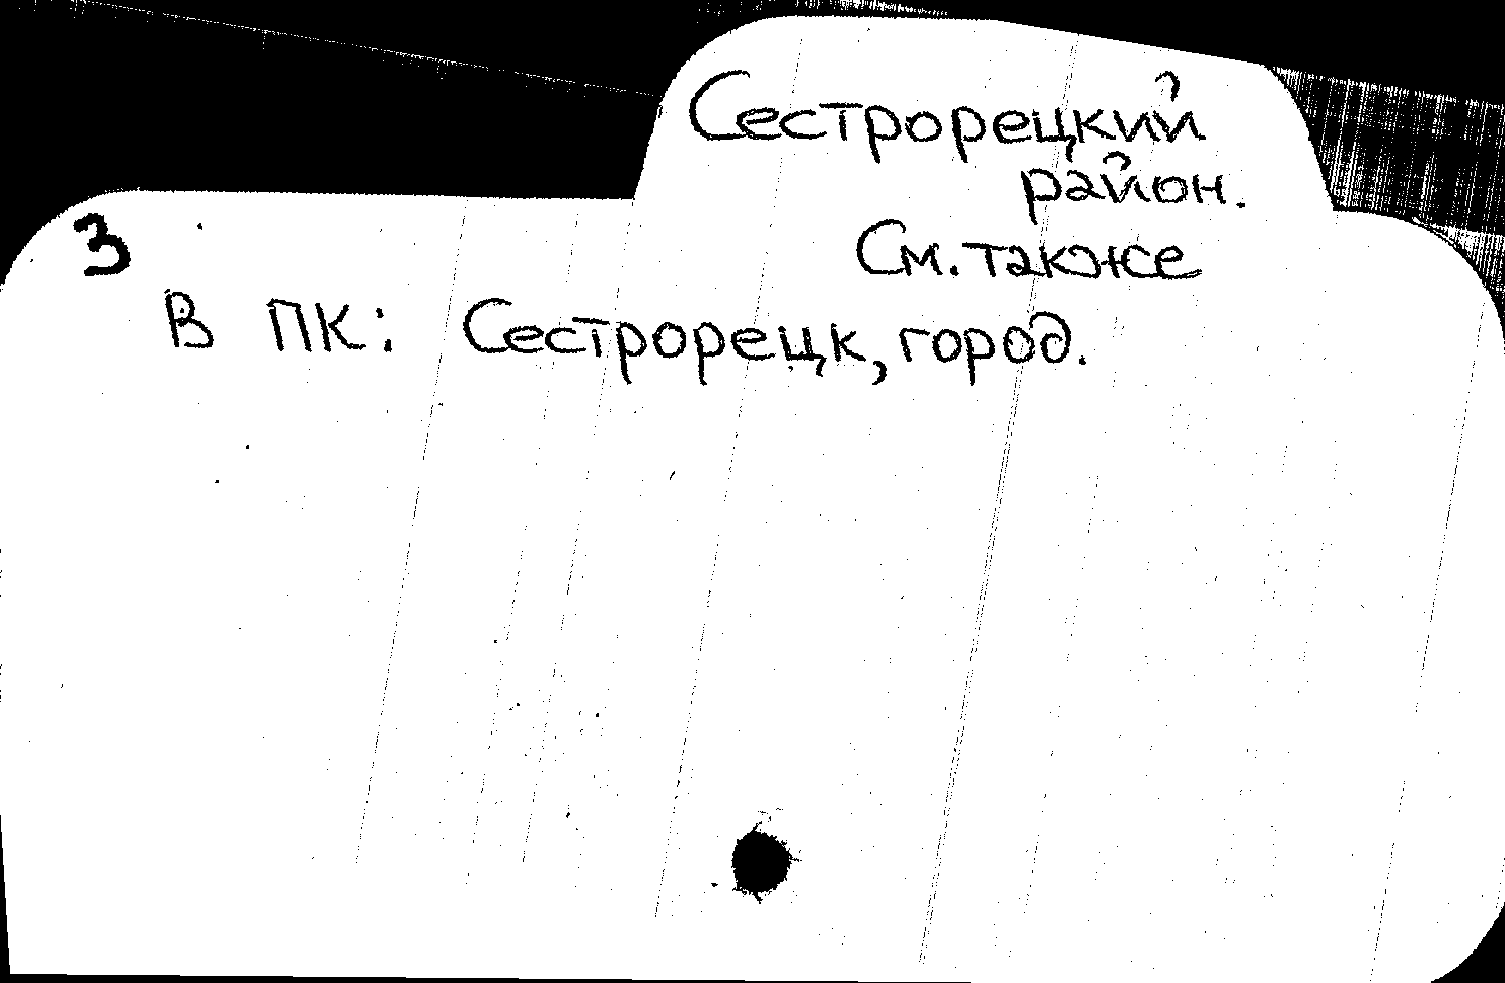 Сестрорецкий
район.
См. также
3
В ПК: Сестрорецк, город.